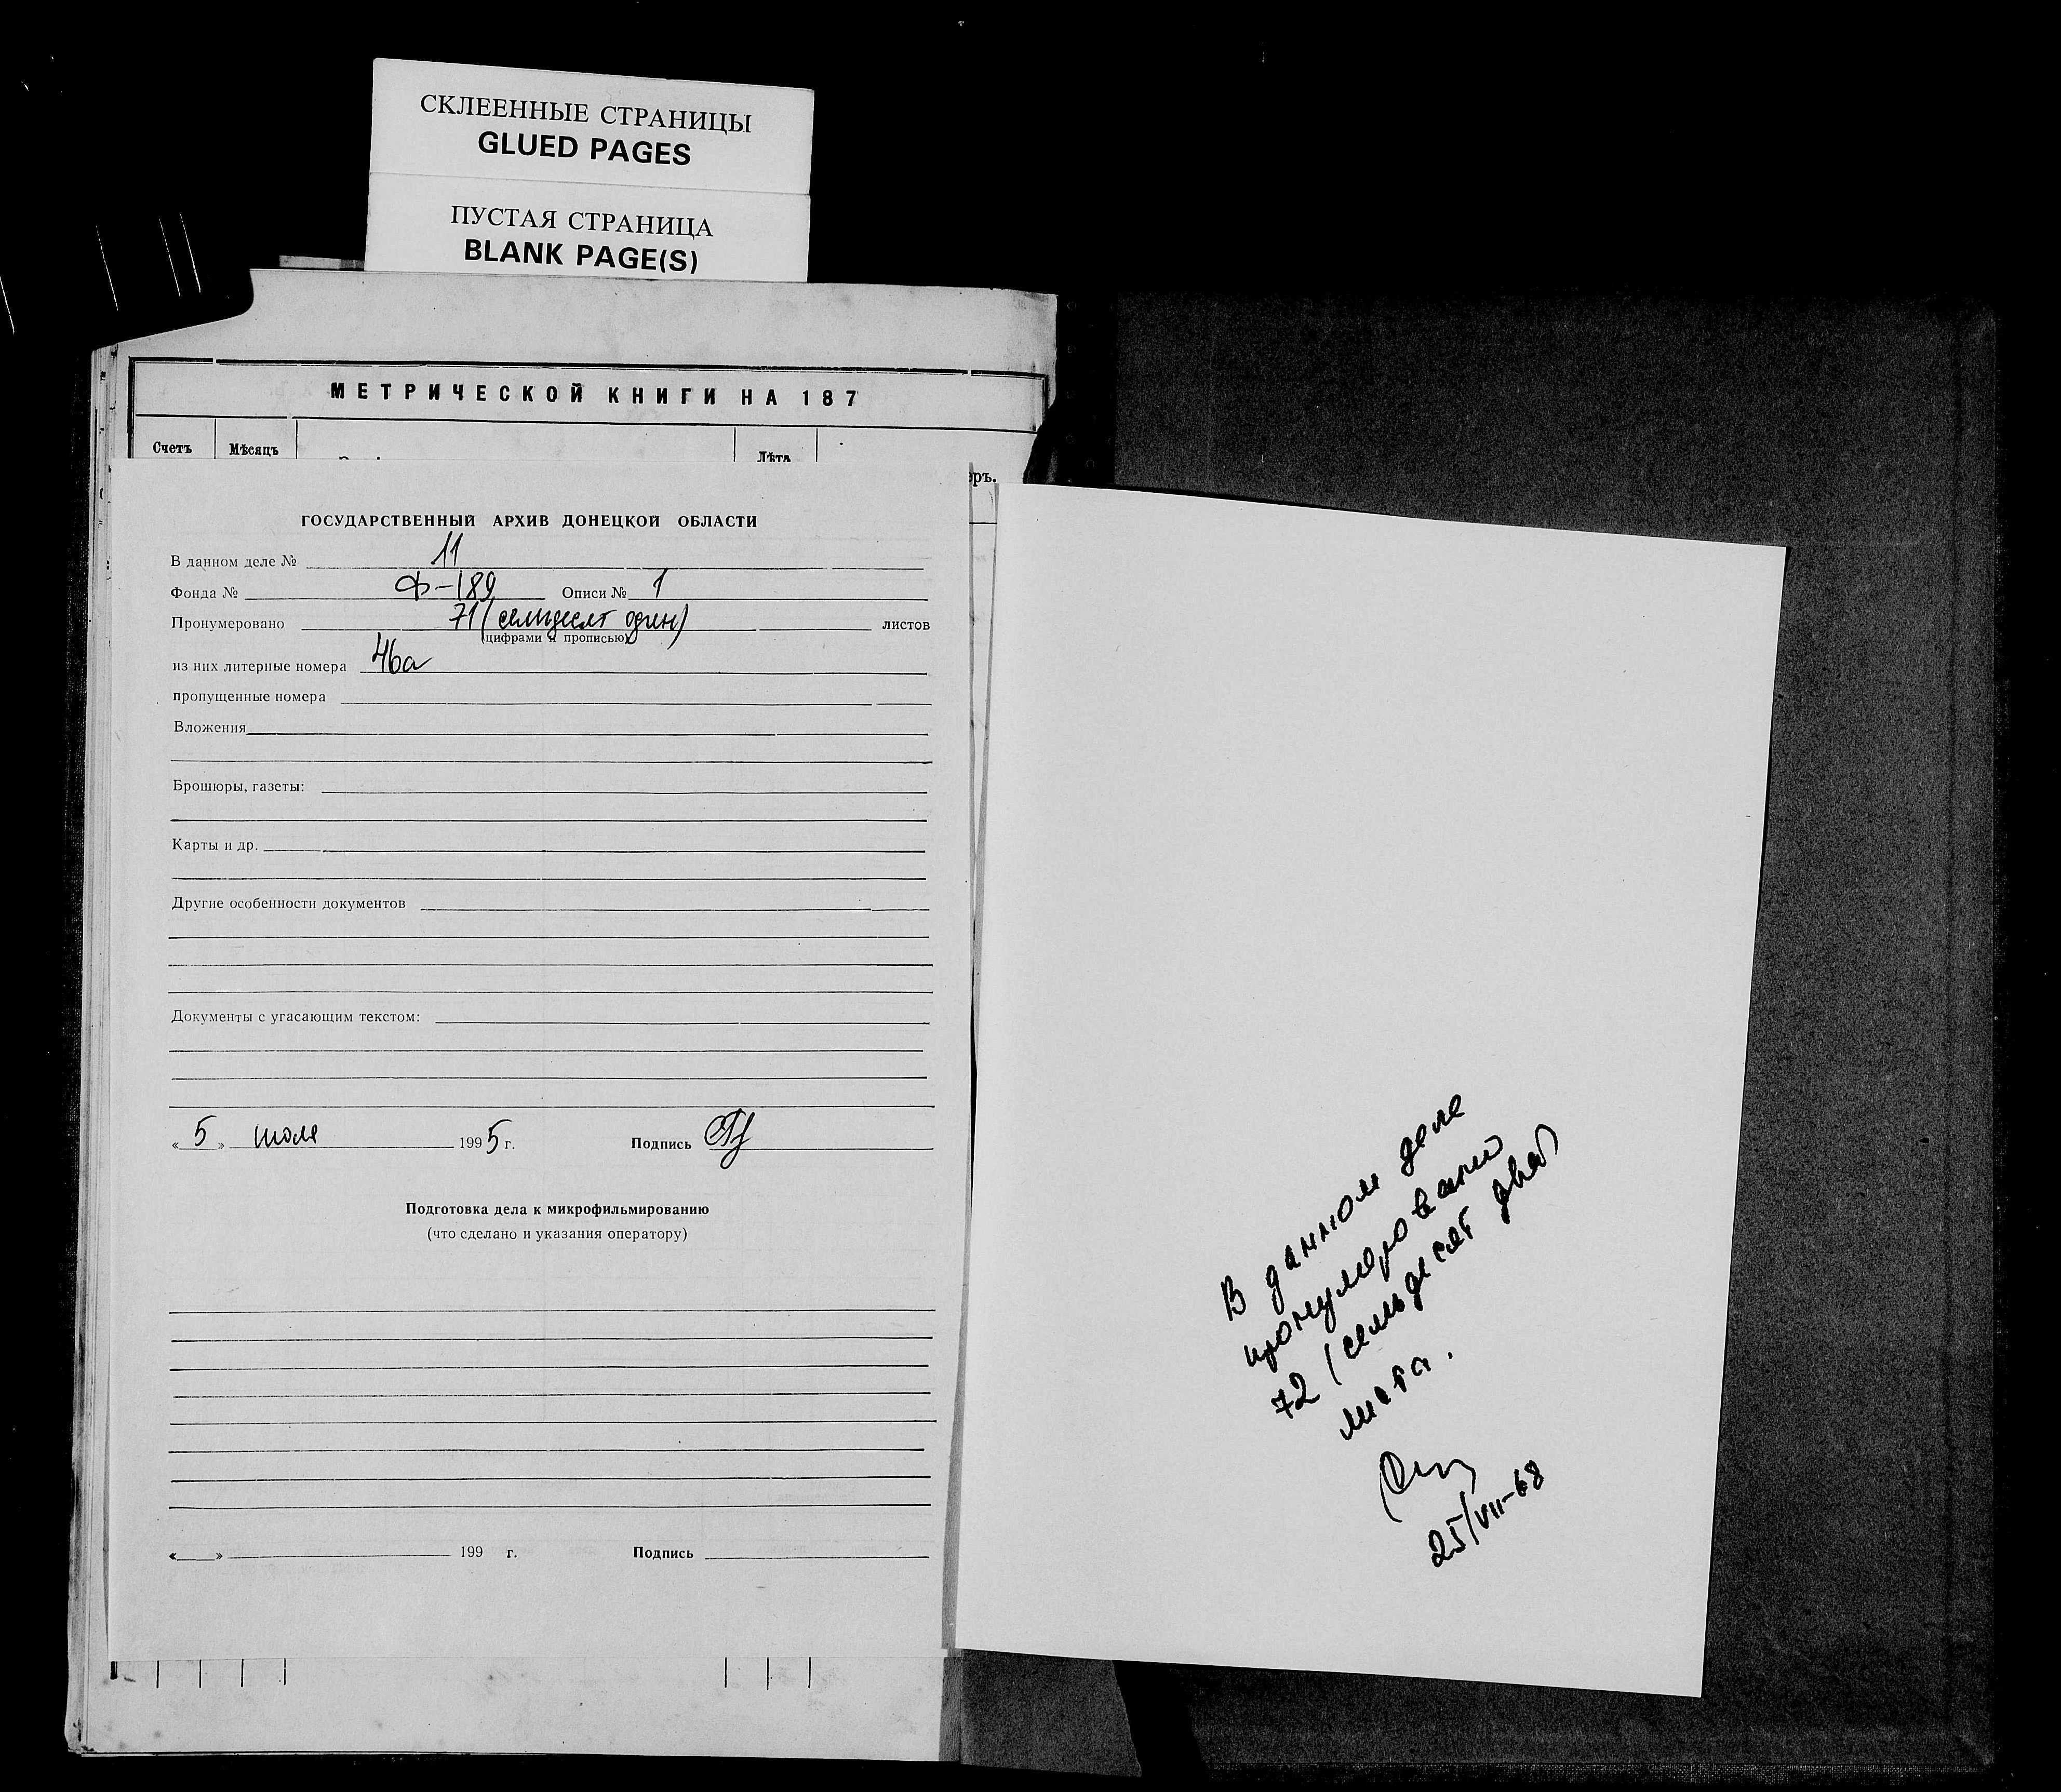 СКЛЕЕННЫЕ СТРАНИЦЫ
GLUED PAGES
ПУСТАЯ СТРАНИЦА
BLANK PAGE(S)
МЕТРИЧЕСКОЙ КНИГИ НА 187
Счетъ Мѣсяцъ Лѣта
ГОСУДАРСТВЕННЫЙ АРХИВ ДОНЕЦКОЙ ОБЛАСТИ
В данном деле № 11
Фонда № Ф-189 Описи № 1
Пронумеровано 71 (семьдесят один) листов
(цифрами и прописью)
из них литерные номера 46а
пропущенные номера
Вложения
Брошюры, газеты:
Карты и др.
Другие особенности документов
Документы с угасающим текстом:
« 5 » июля 1995 г. Подпись
Подготовка дела к микрофильмированию
(что сделано и указания оператору)
« » 199 г. Подпись
В данном деле
пронумеровано
72 (семьдесят два)
листа.
25/VII-68